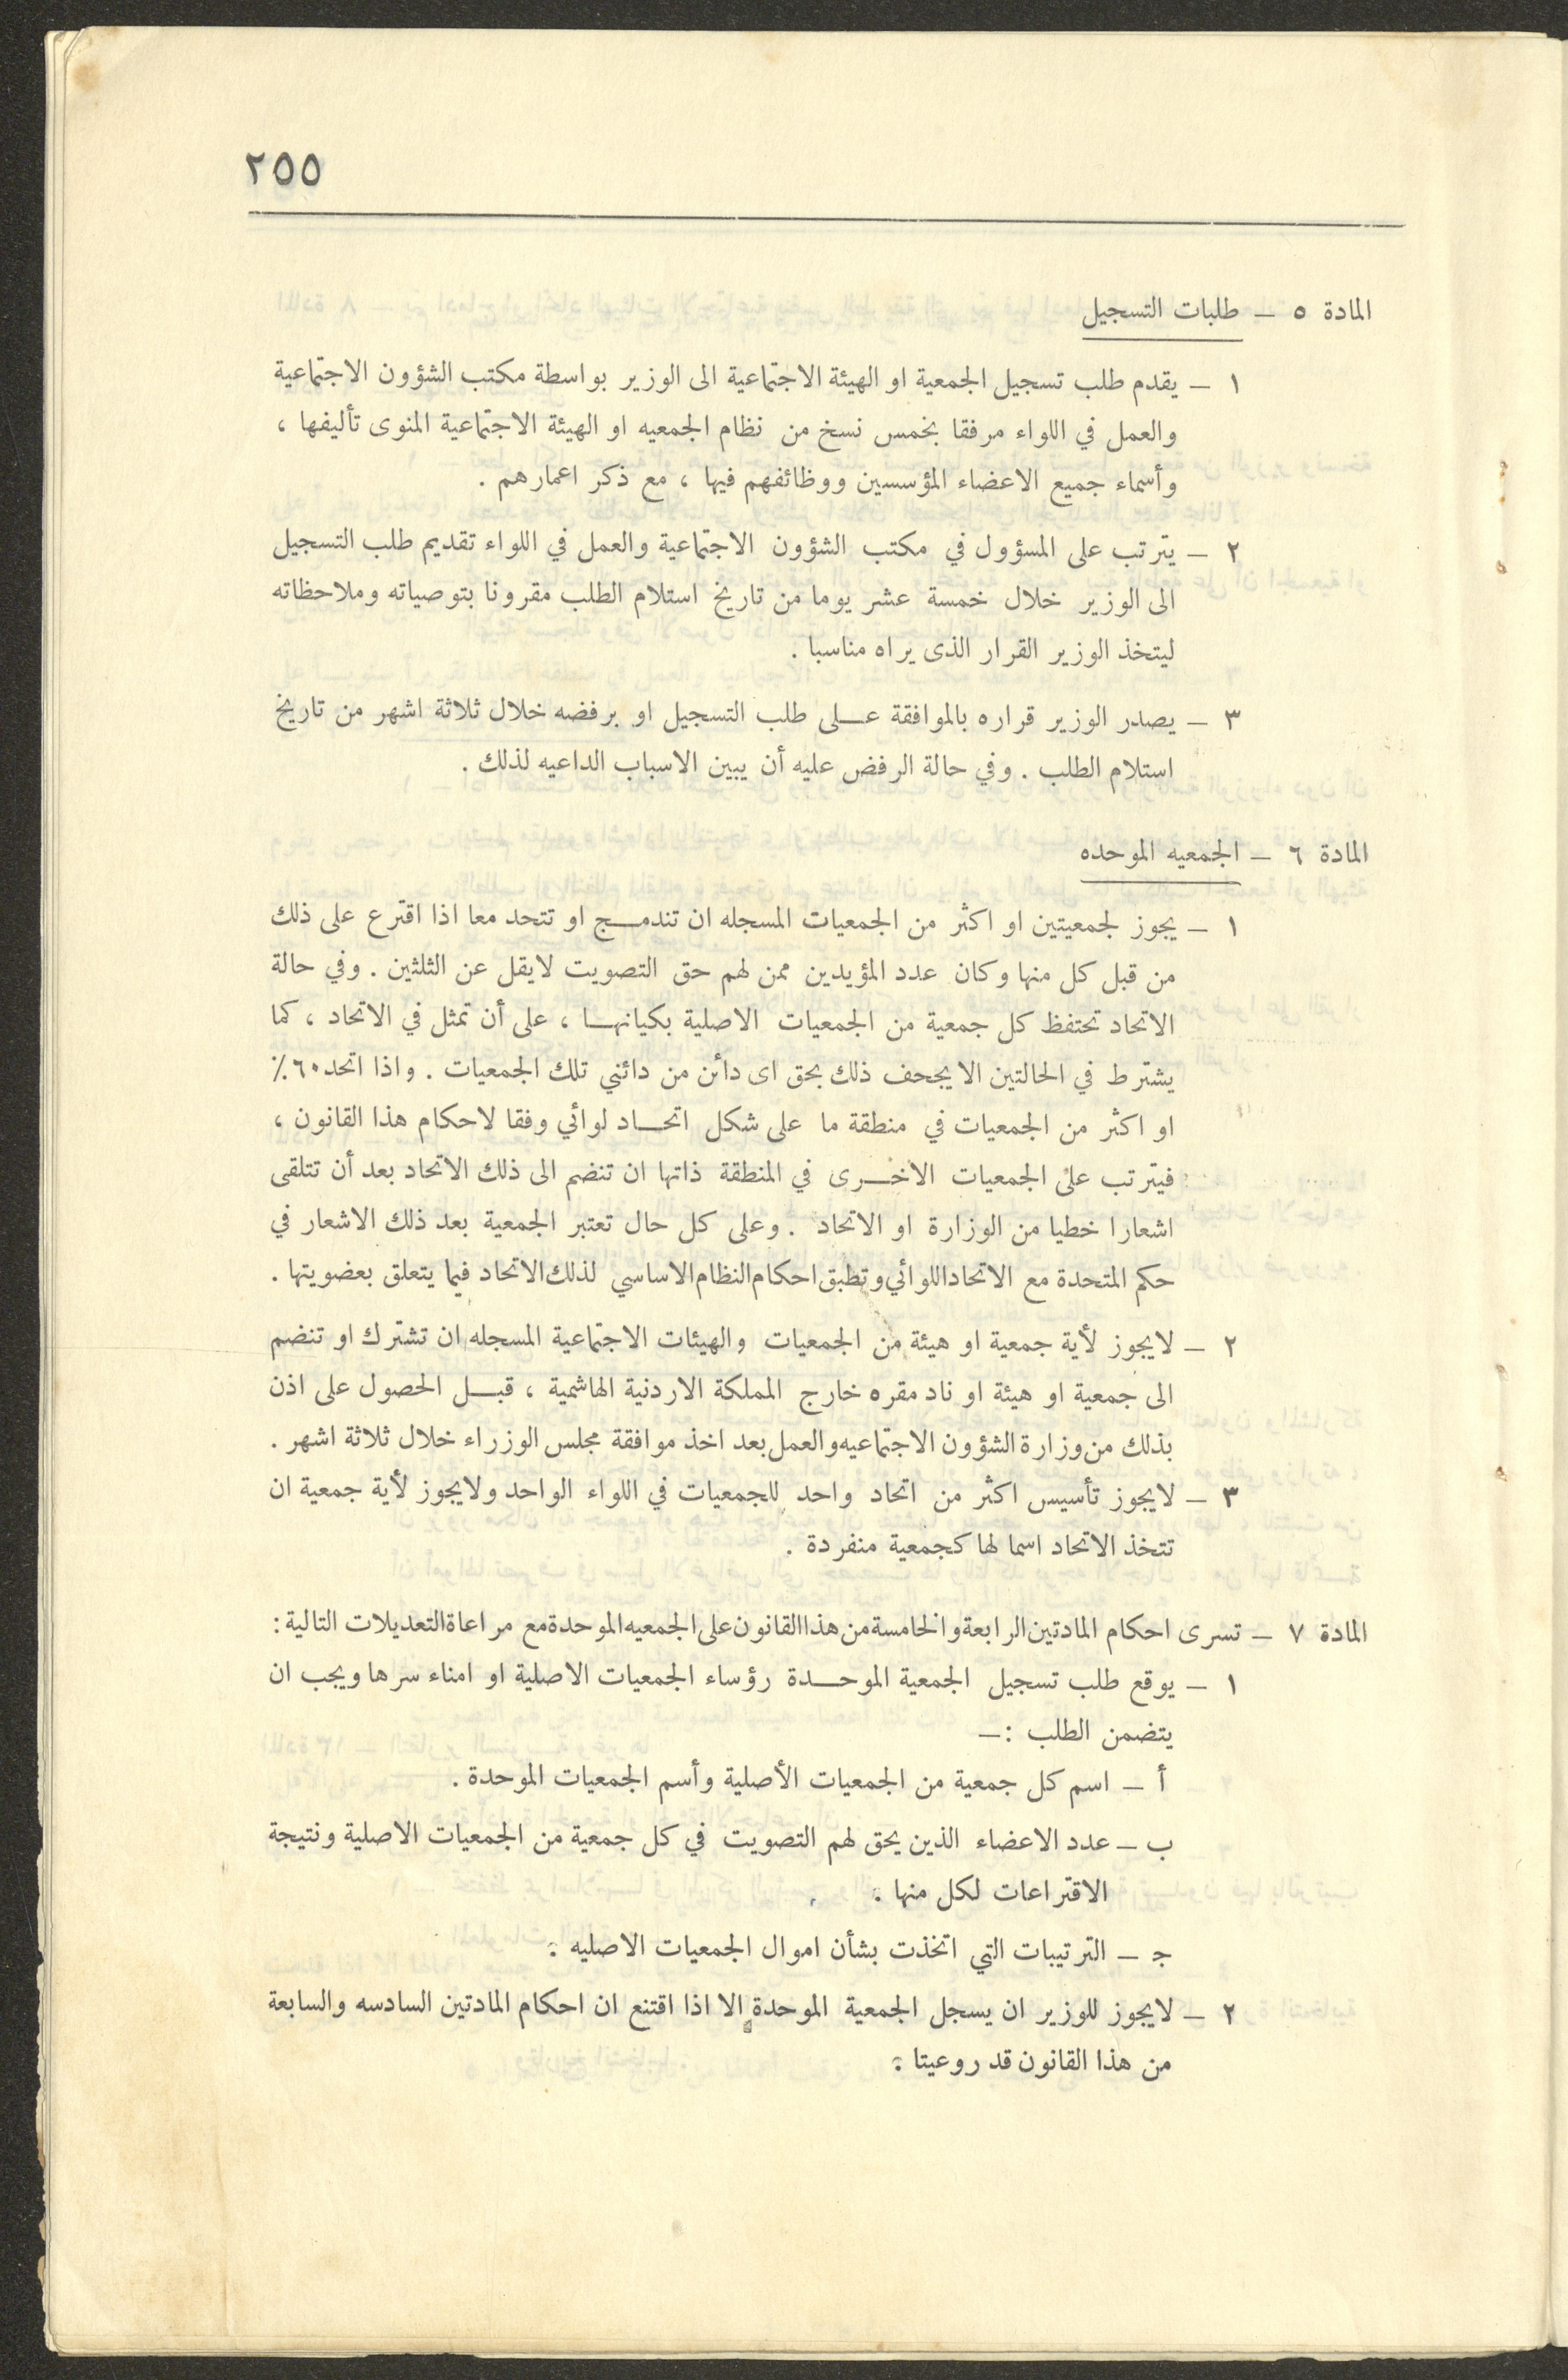 ٢٥٥
المادة ٥ — طلبات التسجيل
١ — يقدم طلب تسجيل الجمعية او الهيئة الاجتماعية الى الوزير بواسطة مكتب الشؤون الاجتماعية
والعمل في اللواء مرفقا بخمس نسخ من نظام الجمعيه او الهيئة الاجتماعية المنوى تأليفها ،
وأسماء جميع الاعضاء المؤسسين ووظائفهم فيها ، مع ذكر اعمارهم .
٢ — يترتب على المسؤول في مكتب الشؤون الاجتماعية والعمل في اللواء تقديم طلب التسجيل
الى الوزير خلال خمسة عشر يوما من تاريخ استلام الطلب مقرونا بتوصياته وملاحظاته
ليتخذ الوزير القرار الذى يراه مناسبا .
٣ — يصدر الوزير قراره بالموافقة عـلى طلب التسجيل او برفضه خلال ثلاثة اشهر من تاريخ
استلام الطلب . وفي حالة الرفض عليه أن يبين الاسباب الداعيه لذلك .
المادة ٦ — الجمعيه الموحده
١ — يجوز لجمعيتين او اكثر من الجمعيات المسجله ان تندمـج او تتحد معا اذا اقترع على ذلك
من قبل كل منها وكان عدد المؤيدين ممن لهم حق التصويت لايقل عن الثلثين . وفي حالة
الاتحاد تحتفظ كل جمعية من الجمعيات الاصلية بكيانهـا ، على أن تمثل في الاتحاد ، كما
يشترط في الحالتين الا يجحف ذلك بحق اى دائن من دائني تلك الجمعيات . واذا اتحد ٦٠٪
او اكثر من الجمعيات في منطقة ما على شكل اتحـاد لوائي وفقا لاحكام هذا القانون ،
فيترتب على الجمعيات الاخـرى في المنطقة ذاتها ان تنضم الى ذلك الاتحاد بعد أن تتلقى
اشعارا خطيا من الوزارة او الاتحاد . وعلى كل حال تعتبر الجمعية بعد ذلك الاشعار في
حكم المتحدة مع الاتحاد اللوائي وتطبق احكام النظام الاساسي لذلك الاتحاد فيما يتعلق بعضويتها .
٢ — لايجوز لأية جمعية او هيئة من الجمعيات والهيئات الاجتماعية المسجله ان تشترك او تنضم
الى جمعية او هيئة او ناد مقره خارج المملكة الاردنية الهاشمية ، قبـل الحصول على اذن
بذلك من وزارة الشؤون الاجتماعيه والعمل بعد اخذ موافقة مجلس الوزراء خلال ثلاثة اشهر .
٣ — لايجوز تأسيس اكثر من اتحاد واحد للجمعيات في اللواء الواحد ولايجوز لأية جمعية ان
تتخذ الاتحاد اسما لها كجمعية منفردة .
المادة ٧ — تسرى احكام المادتين الرابعة والخامسة من هذا القانون على الجمعيه الموحدة مع مراعاة التعديلات التالية :
١ — يوقع طلب تسجيل الجمعية الموحـدة رؤساء الجمعيات الاصلية او امناء سرها ويجب ان
يتضمن الطلب :—
أ — اسم كل جمعية من الجمعيات الأصلية وأسم الجمعيات الموحدة .
ب — عدد الاعضاء الذين يحق لهم التصويت في كل جمعية من الجمعيات الاصلية ونتيجة
الاقتراعات لكل منها .
ج — الترتيبات التي اتخذت بشأن اموال الجمعيات الاصليه .
٢ — لايجوز للوزير ان يسجل الجمعية الموحدة الا اذا اقتنع ان احكام المادتين السادسه والسابعة
من هذا القانون قد روعيتا .